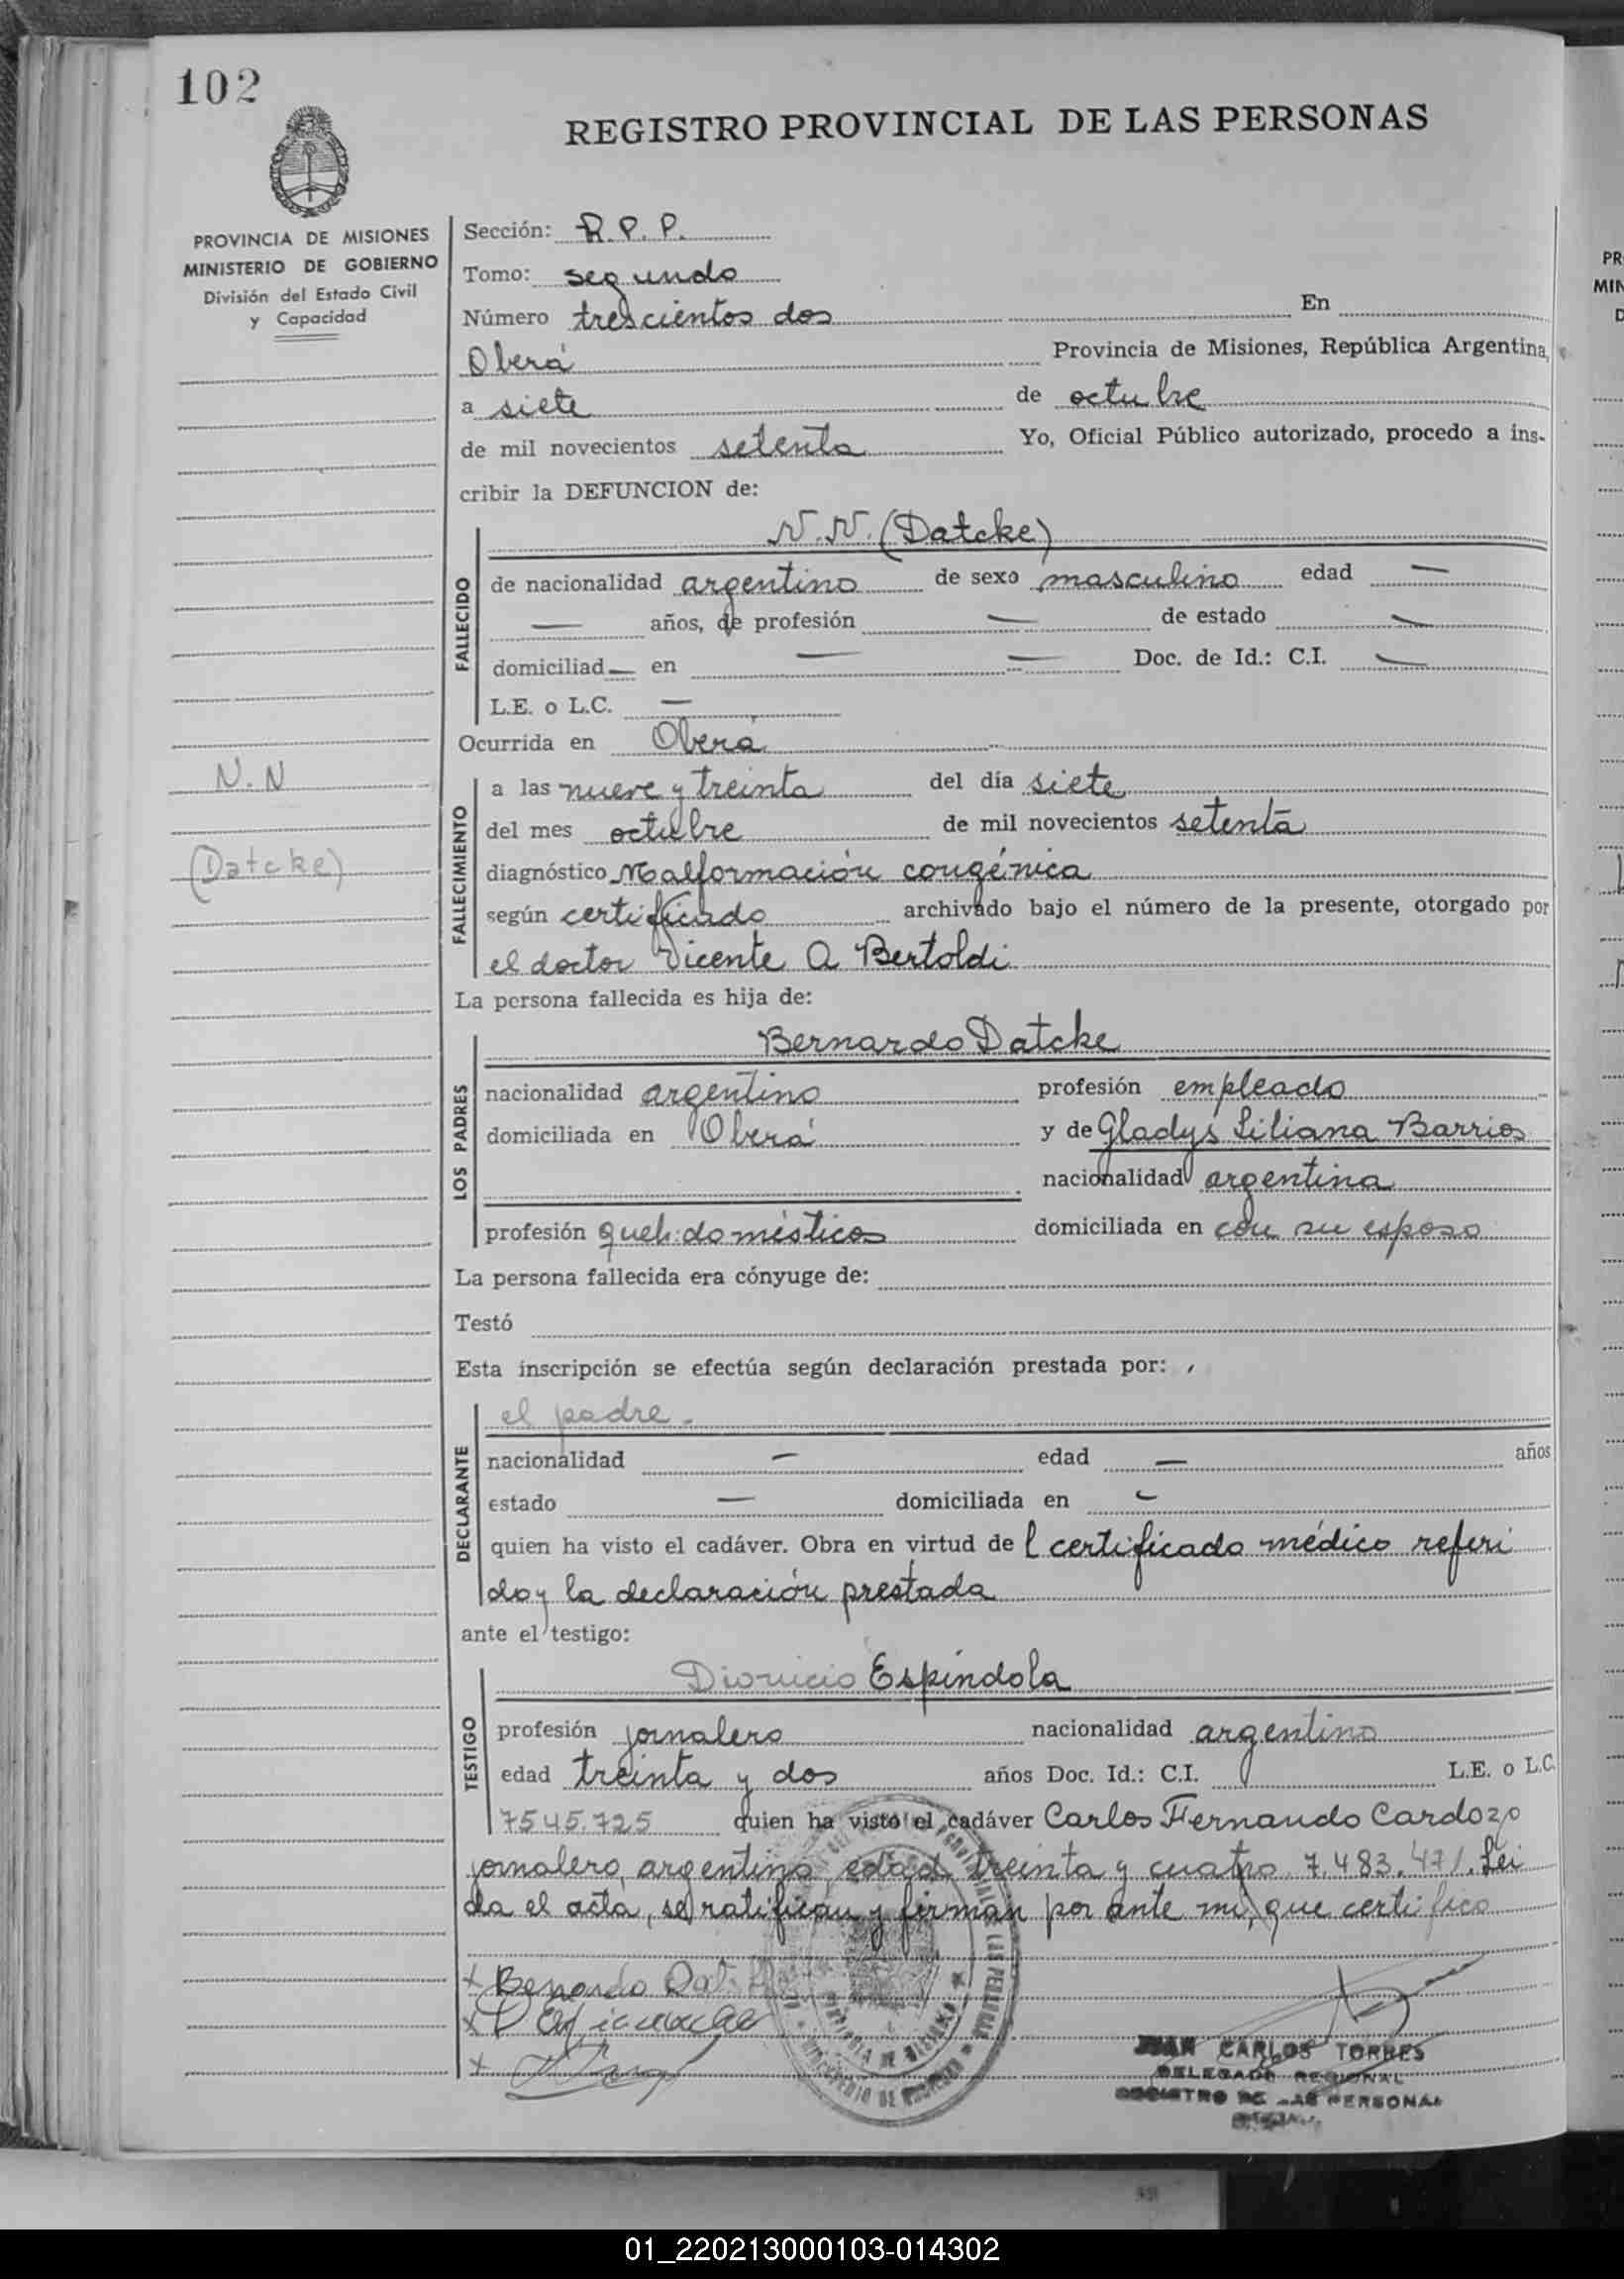 102
REGISTRO PROVINCIAL DE LAS PERSONAS
PROVINCIA DE MISIONES
MINISTERIO DE GOBIERNO
División del Estado Civil
y Capacidad
N.N
(Datcke)
Sección: R.P.P.
Tomo: segundo
Número trescientos dos En
Oberá Provincia de Misiones, República Argentina,
a siete de octubre
de mil novecientos setenta Yo, Oficial Público autorizado, procedo a ins-
cribir la DEFUNCION de:
FALLECIDO
N.N. (Datcke)
de nacionalidad argentino de sexo masculino edad —
— años, de profesión — de estado —
domiciliad— en — — Doc. de Id.: C.I. —
L.E. o L.C. —
Ocurrida en Oberá
FALLECIMIENTO
a las nueve y treinta del día siete
del mes octubre de mil novecientos setenta
diagnóstico Malformación congénica
según certificado archivado bajo el número de la presente, otorgado por
el doctor Vicente A Bertoldi
La persona fallecida es hija de:
LOS PADRES
Bernardo Datcke
nacionalidad argentino profesión empleado
domiciliada en Oberá y de Gladys Liliana Barrios
nacionalidad argentina
profesión queh. domésticos domiciliada en con su esposo
La persona fallecida era cónyuge de:
Testó
Esta inscripción se efectúa según declaración prestada por:
DECLARANTE
el padre.
nacionalidad — edad — años
estado — domiciliada en —
quien ha visto el cadáver. Obra en virtud de l certificado médico referi
do y la declaración prestada
ante el testigo:
TESTIGO
Dionicio Espíndola
profesión jornalero nacionalidad argentino
edad treinta y dos años Doc. Id.: C.I. L.E. o L.C.
7545.725 quien ha visto el cadáver Carlos Fernando Cardozo
jornalero, argentino, edad treinta y cuatro. 7.483.471. Leí
da el acta, se ratifican y firman por ante mi, que certifico
JUAN CARLOS TORRES
DELEGADO REGIONAL
REGISTRO DE LAS PERSONAS
01_220213000103-014302